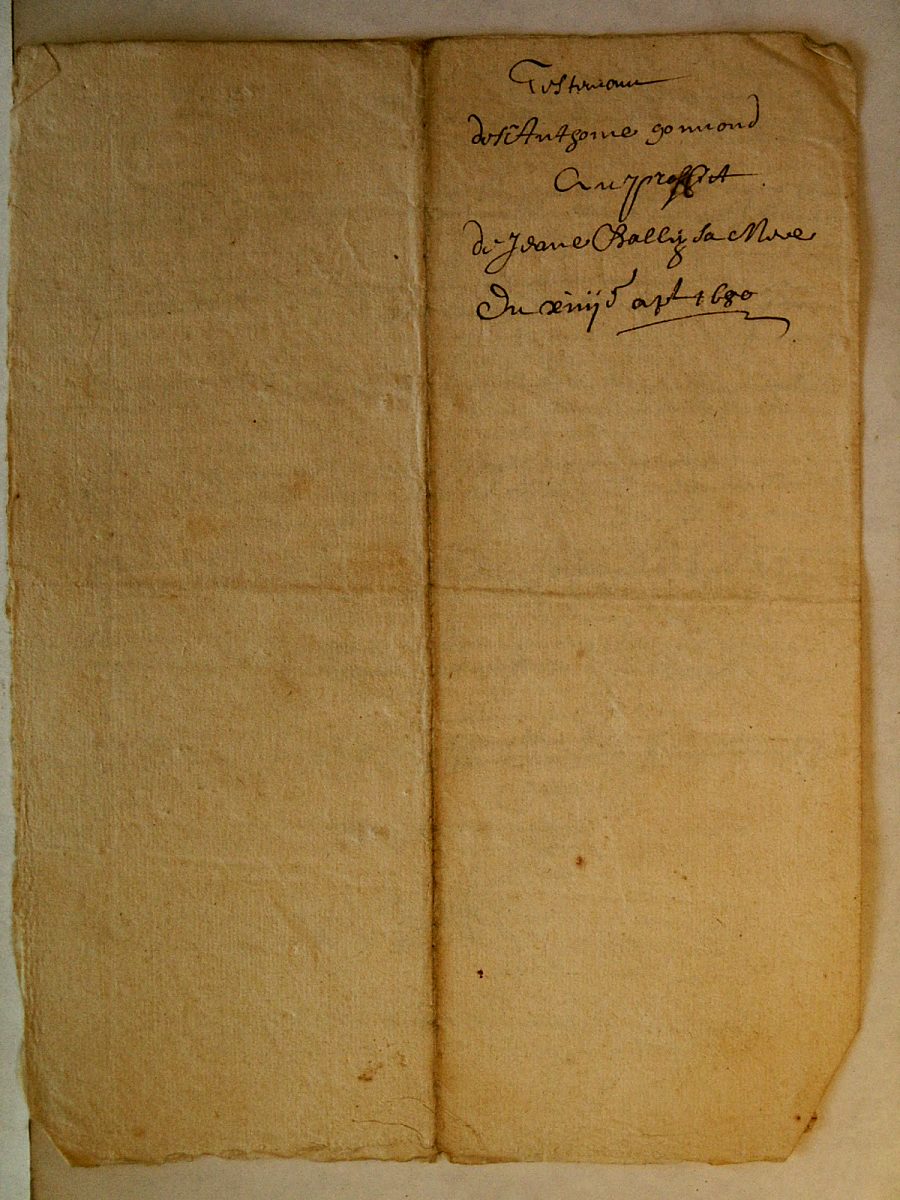 Testemant
de sr Anthoine gonnond
Au proffict
de Jeane Bally sa Mere
Du xiiij apt 1680